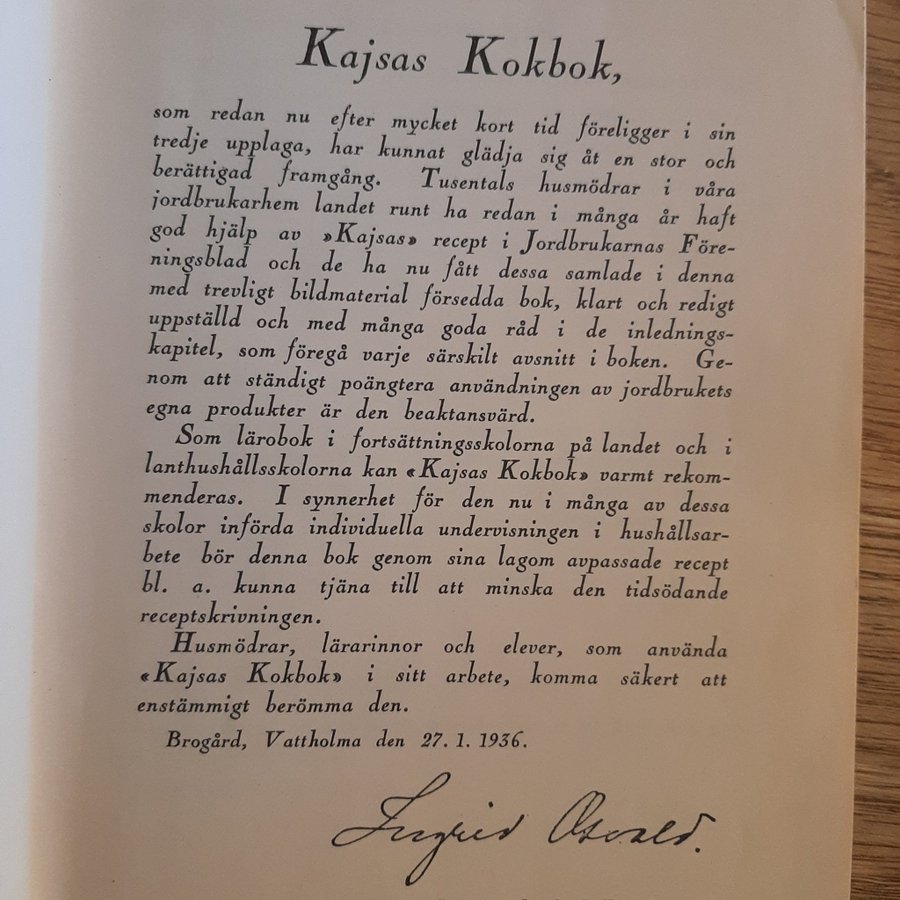 Kajsas Kokbok,
som redan nu efter mycket kort tid föreligger i sin
tredje upplaga, har kunnat glädja sig åt en stor och
berättigad framgång. Tusentals husmödrar i våra
jordbrukarhem landet runt ha redan i många år haft
god hjälp av »Kajsas» recept i Jordbrukarnas Före-
ningsblad och de ha nu fått dessa samlade i denna
med trevligt bildmaterial försedda bok, klart och redigt
uppställd och med många goda råd i de inlednings-
kapitel, som föregå varje särskilt avsnitt i boken. Ge-
nom att ständigt poängtera användningen av jordbrukets
egna produkter är den beaktansvärd.
Som lärobok i fortsättningsskolorna på landet och i
lanthushållsskolorna kan «Kajsas Kokbok» varmt rekom-
menderas. I synnerhet för den nu i många av dessa
skolor införda individuella undervisningen i hushållsar-
bete bör denna bok genom sina lagom avpassade recept
bl. a. kunna tjäna till att minska den tidsödande
receptskrivningen.
Husmödrar, lärarinnor och elever, som använda
«Kajsas Kokbok» i sitt arbete, komma säkert att
enstämmigt berömma den.
Brogård, Vattholma den 27. 1. 1936.
Ingrid Osvald.